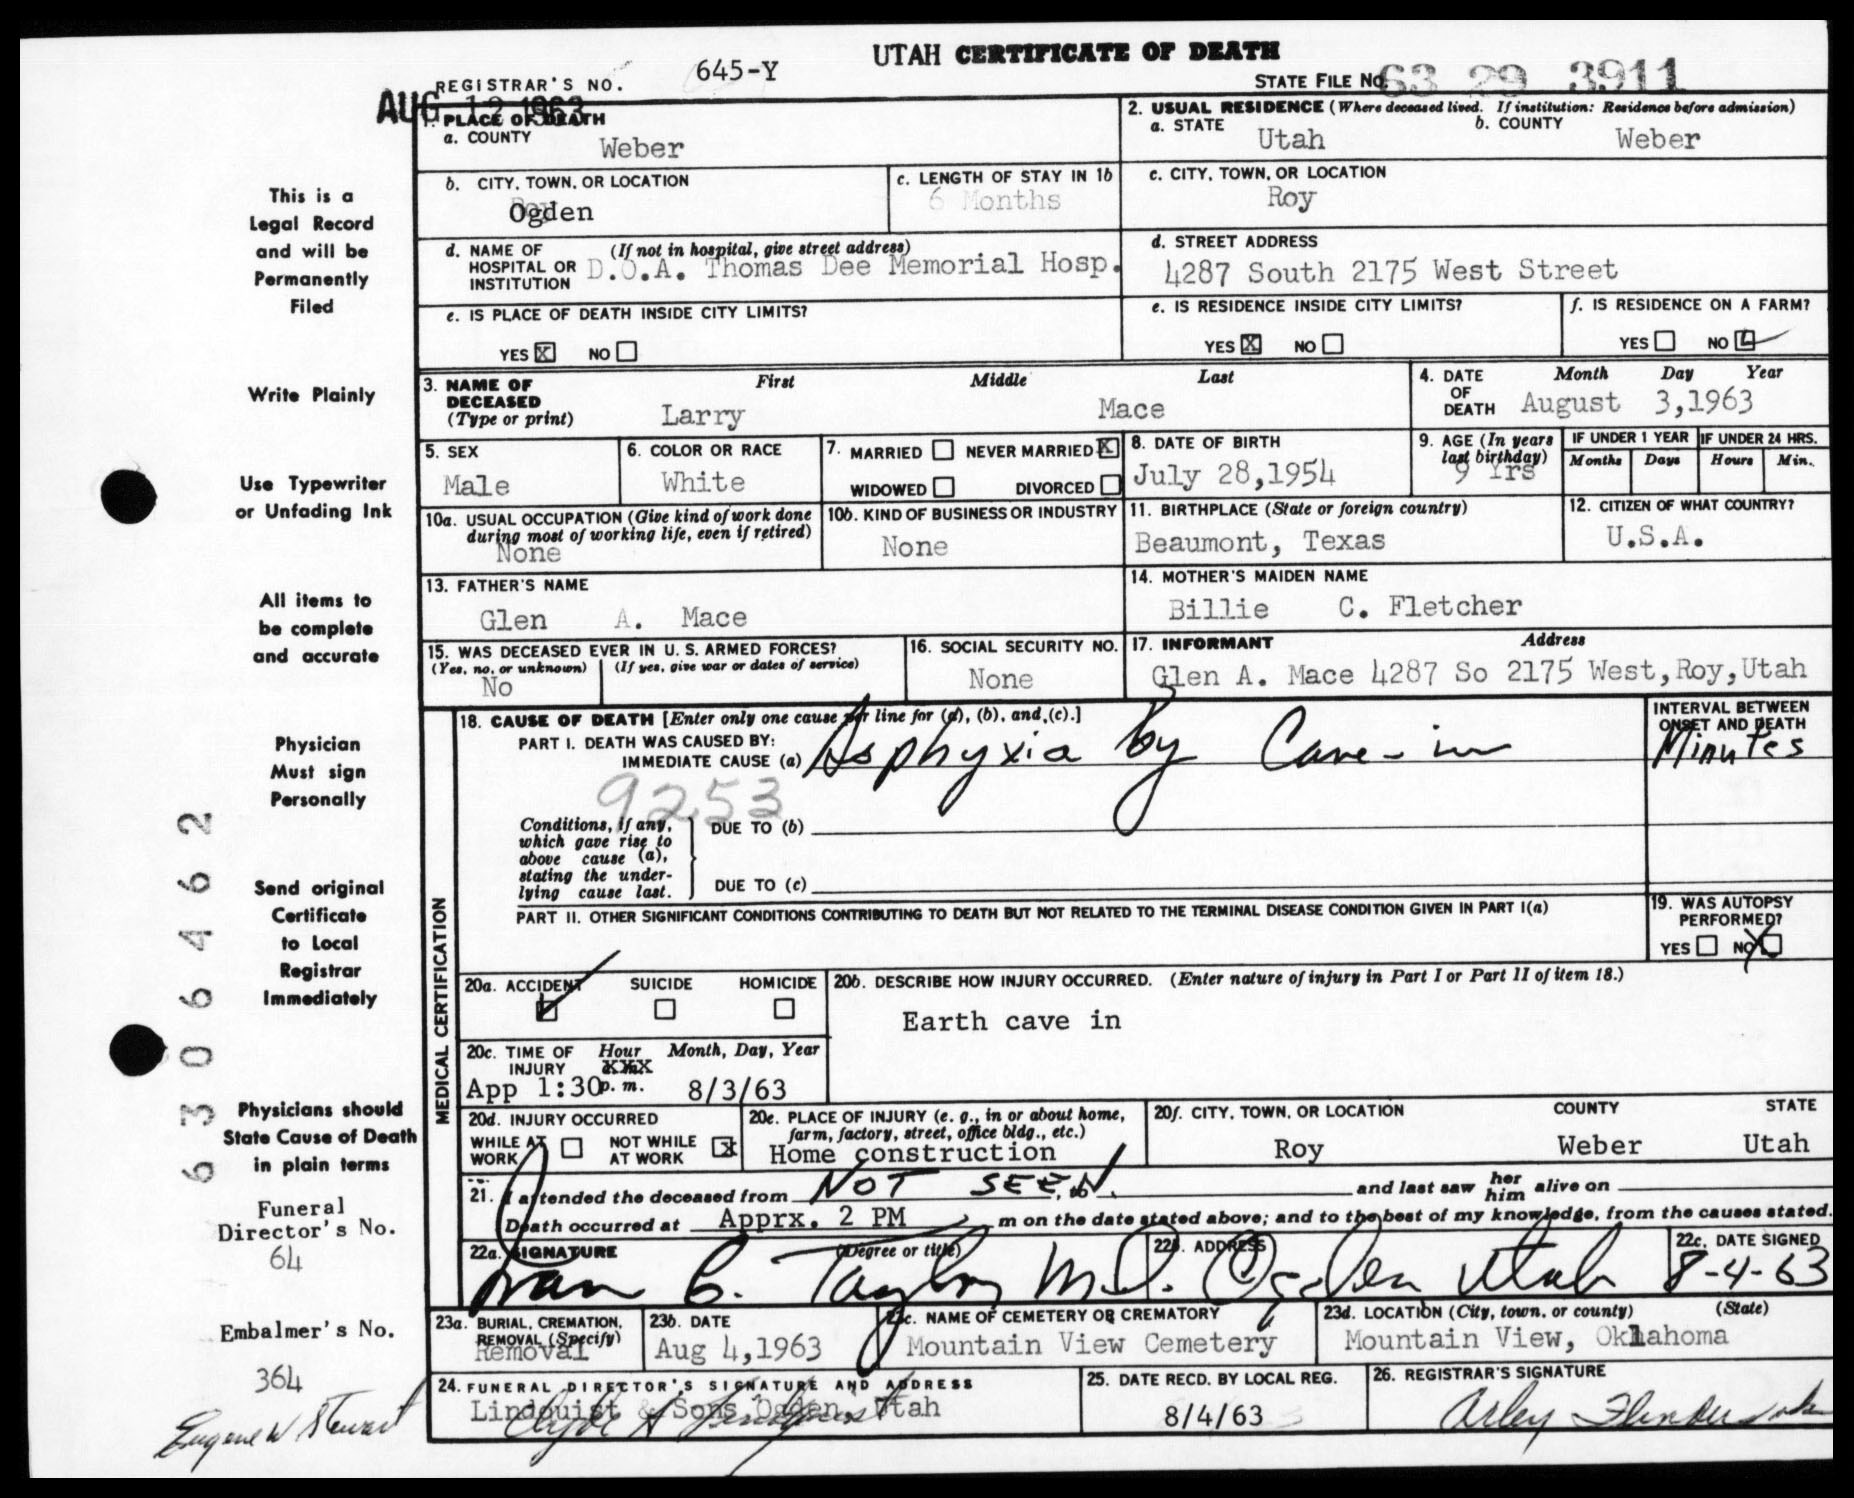 UTAH CERTIFICATE OF DEATH
REGISTRAR'S NO. 645-Y
STATE FILE NO. 63 29 3911
AUG 12 1963
1. PLACE OF DEATH
a. COUNTY
Weber
2. USUAL RESIDENCE (Where deceased lived. If institution: Residence before admission)
a. STATE Utah b. COUNTY Weber
b. CITY, TOWN, OR LOCATION
Ogden
c. LENGTH OF STAY IN 1b
6 Months
c. CITY, TOWN, OR LOCATION
Roy
d. NAME OF HOSPITAL OR INSTITUTION (If not in hospital, give street address)
D.O.A. Thomas Dee Memorial Hosp.
d. STREET ADDRESS
4287 South 2175 West Street
e. IS PLACE OF DEATH INSIDE CITY LIMITS?
YES X NO
e. IS RESIDENCE INSIDE CITY LIMITS?
YES X NO
f. IS RESIDENCE ON A FARM?
YES NO
3. NAME OF DECEASED (Type or print)
First Middle Last
Larry Mace
4. DATE OF DEATH Month Day Year
August 3,1963
5. SEX
Male
6. COLOR OR RACE
White
7. MARRIED NEVER MARRIED X
WIDOWED DIVORCED
8. DATE OF BIRTH
July 28,1954
9. AGE (In years last birthday)
9 Yrs
IF UNDER 1 YEAR
Months Days
IF UNDER 24 HRS.
Hours Min.
10a. USUAL OCCUPATION (Give kind of work done during most of working life, even if retired)
None
10b. KIND OF BUSINESS OR INDUSTRY
None
11. BIRTHPLACE (State or foreign country)
Beaumont, Texas
12. CITIZEN OF WHAT COUNTRY?
U.S.A.
13. FATHER'S NAME
Glen A. Mace
14. MOTHER'S MAIDEN NAME
Billie C. Fletcher
15. WAS DECEASED EVER IN U. S. ARMED FORCES?
(Yes, no, or unknown) (If yes, give war or dates of service)
No
16. SOCIAL SECURITY NO.
None
17. INFORMANT Address
Glen A. Mace 4287 So 2175 West,Roy,Utah
MEDICAL CERTIFICATION
18. CAUSE OF DEATH [Enter only one cause per line for (a), (b), and (c).]
PART I. DEATH WAS CAUSED BY:
IMMEDIATE CAUSE (a) Asphyxia by Cave-in
INTERVAL BETWEEN ONSET AND DEATH
Minutes
9253
Conditions, if any, which gave rise to above cause (a), stating the underlying cause last.
DUE TO (b)
DUE TO (c)
PART II. OTHER SIGNIFICANT CONDITIONS CONTRIBUTING TO DEATH BUT NOT RELATED TO THE TERMINAL DISEASE CONDITION GIVEN IN PART I(a)
19. WAS AUTOPSY PERFORMED?
YES NO X
20a. ACCIDENT SUICIDE HOMICIDE
20b. DESCRIBE HOW INJURY OCCURRED. (Enter nature of injury in Part I or Part II of item 18.)
Earth cave in
20c. TIME OF INJURY Hour Month, Day, Year
App 1:30 p. m. 8/3/63
20d. INJURY OCCURRED
WHILE AT WORK NOT WHILE AT WORK X
20e. PLACE OF INJURY (e. g., in or about home, farm, factory, street, office bldg., etc.)
Home construction
20f. CITY, TOWN, OR LOCATION COUNTY STATE
Roy Weber Utah
21. I attended the deceased from NOT SEEN, to and last saw her him alive on
Death occurred at Apprx. 2 PM m on the date stated above; and to the best of my knowledge, from the causes stated.
22a. SIGNATURE (Degree or title)
Ivan C. Taylor M.D.
22b. ADDRESS
Ogden Utah
22c. DATE SIGNED
8-4-63
23a. BURIAL, CREMATION, REMOVAL (Specify)
Removal
23b. DATE
Aug 4,1963
23c. NAME OF CEMETERY OR CREMATORY
Mountain View Cemetery
23d. LOCATION (City, town, or county) (State)
Mountain View, Oklahoma
24. FUNERAL DIRECTOR'S SIGNATURE AND ADDRESS
Lindquist & Sons Ogden, Utah
25. DATE RECD. BY LOCAL REG.
8/4/63
26. REGISTRAR'S SIGNATURE
This is a
Legal Record
and will be
Permanently
Filed
Write Plainly
Use Typewriter
or Unfading Ink
All items to
be complete
and accurate
Physician
Must sign
Personally
Send original
Certificate
to Local
Registrar
Immediately
Physicians should
State Cause of Death
in plain terms
Funeral
Director's No.
64
Embalmer's No.
364
Eugene W Stewart
6306462